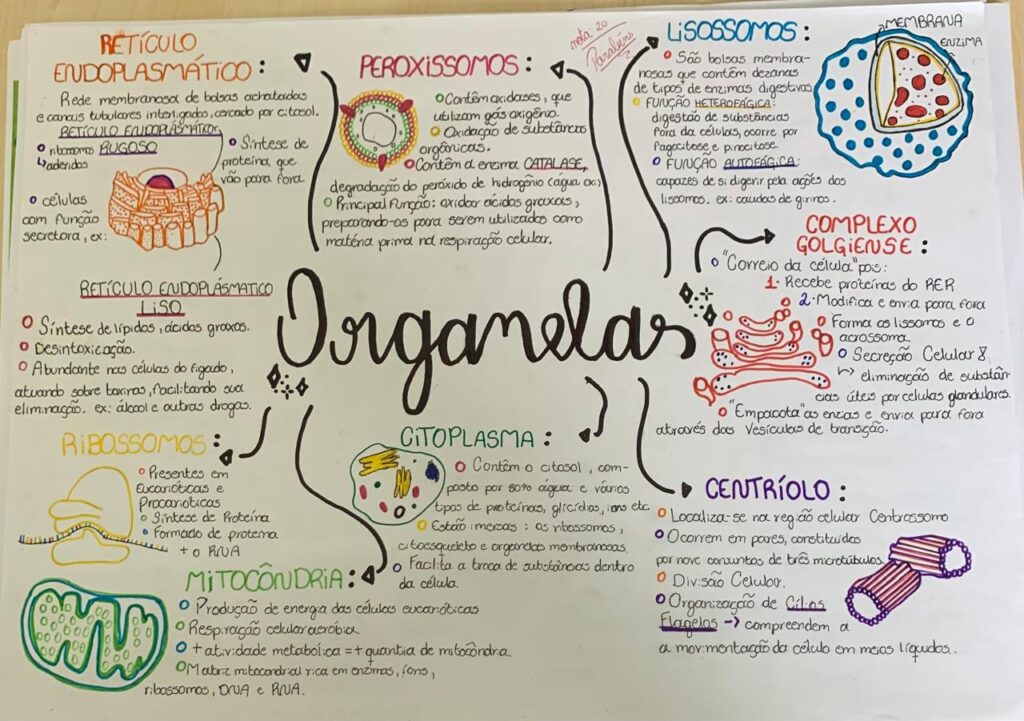 RETÍCULO
ENDOPLASMÁTICO:
Rede membranosa de bolsas achatadas
e canais tubulares interligados, cercado por citosol.
RETÍCULO ENDOPLASMÁTICO
RUGOSO
ribossomos
aderidos
Síntese de
proteína que
vão para fora
células
com função
secretora, ex:
RETÍCULO ENDOPLASMÁTICO
LISO
Síntese de lípidos, ácidos graxos.
Desintoxicação.
Abundante nas células do fígado,
atuando sobre toxinas, facilitando sua
eliminação. ex: álcool e outras drogas.
RIBOSSOMOS:
Presentes em
Eucarióticas e
Procarióticas
Síntese de Proteína
Formado de proteína
+ o RNA
MITOCÔNDRIA:
Produção de energia das células eucarióticas
Respiração celular aeróbia.
+ atividade metabólica = + quantia de mitocôndria.
Matriz mitocondrial rica em enzimas, íons,
ribossomos, DNA e RNA.
PEROXISSOMOS:
Contêm oxidases, que
utilizam gás oxigênio.
Oxidação de substâncias
orgânicas.
Contêm a enzima CATALASE,
degradação do peróxido de hidrogênio (água ox.)
Principal função: oxidar ácidos graxos,
preparando-os para serem utilizados como
matéria prima na respiração celular.
nota: 20
Parabéns
Organelas
CITOPLASMA:
Contêm o citosol, com-
posto por 80% água e vários
tipos de proteínas, glicídios, ions etc
Estão imersas: os ribossomos,
citoesqueleto e organelas membranosas.
Facilita a troca de substâncias dentro
da célula.
LISOSSOMOS:
MEMBRANA
ENZIMA
São bolsas membra-
nosas que contêm dezenas
de tipos de enzimas digestivas
FUNÇÃO HETEROFÁGICA:
digestão de substâncias
fora da células, ocorre por
fagocitose e pinocitose.
FUNÇÃO AUTOFÁGICA:
capazes de si digerir pela ações dos
lissomos. ex: caudas de girinos.
COMPLEXO
GOLGIENSE:
"Correio da célula" pois:
1. Recebe proteínas do RER
2. Modifica e envia para fora
Forma os lissomos e o
acrossoma.
Secreção Celular 8,
eliminação de substân-
cias úteis por celulas glandulares.
"Empacota" as enzias e envia para fora
através das vesículas de transição.
CENTRÍOLO:
Localiza-se na região celular Centrossomo
Ocorrem em pares, constituídos
por nove conjuntos de três microtúbulos.
Divisão Celular.
Organização de Cílios
Flagelos → compreendem a
a movimentação da célula em meios líquidos..